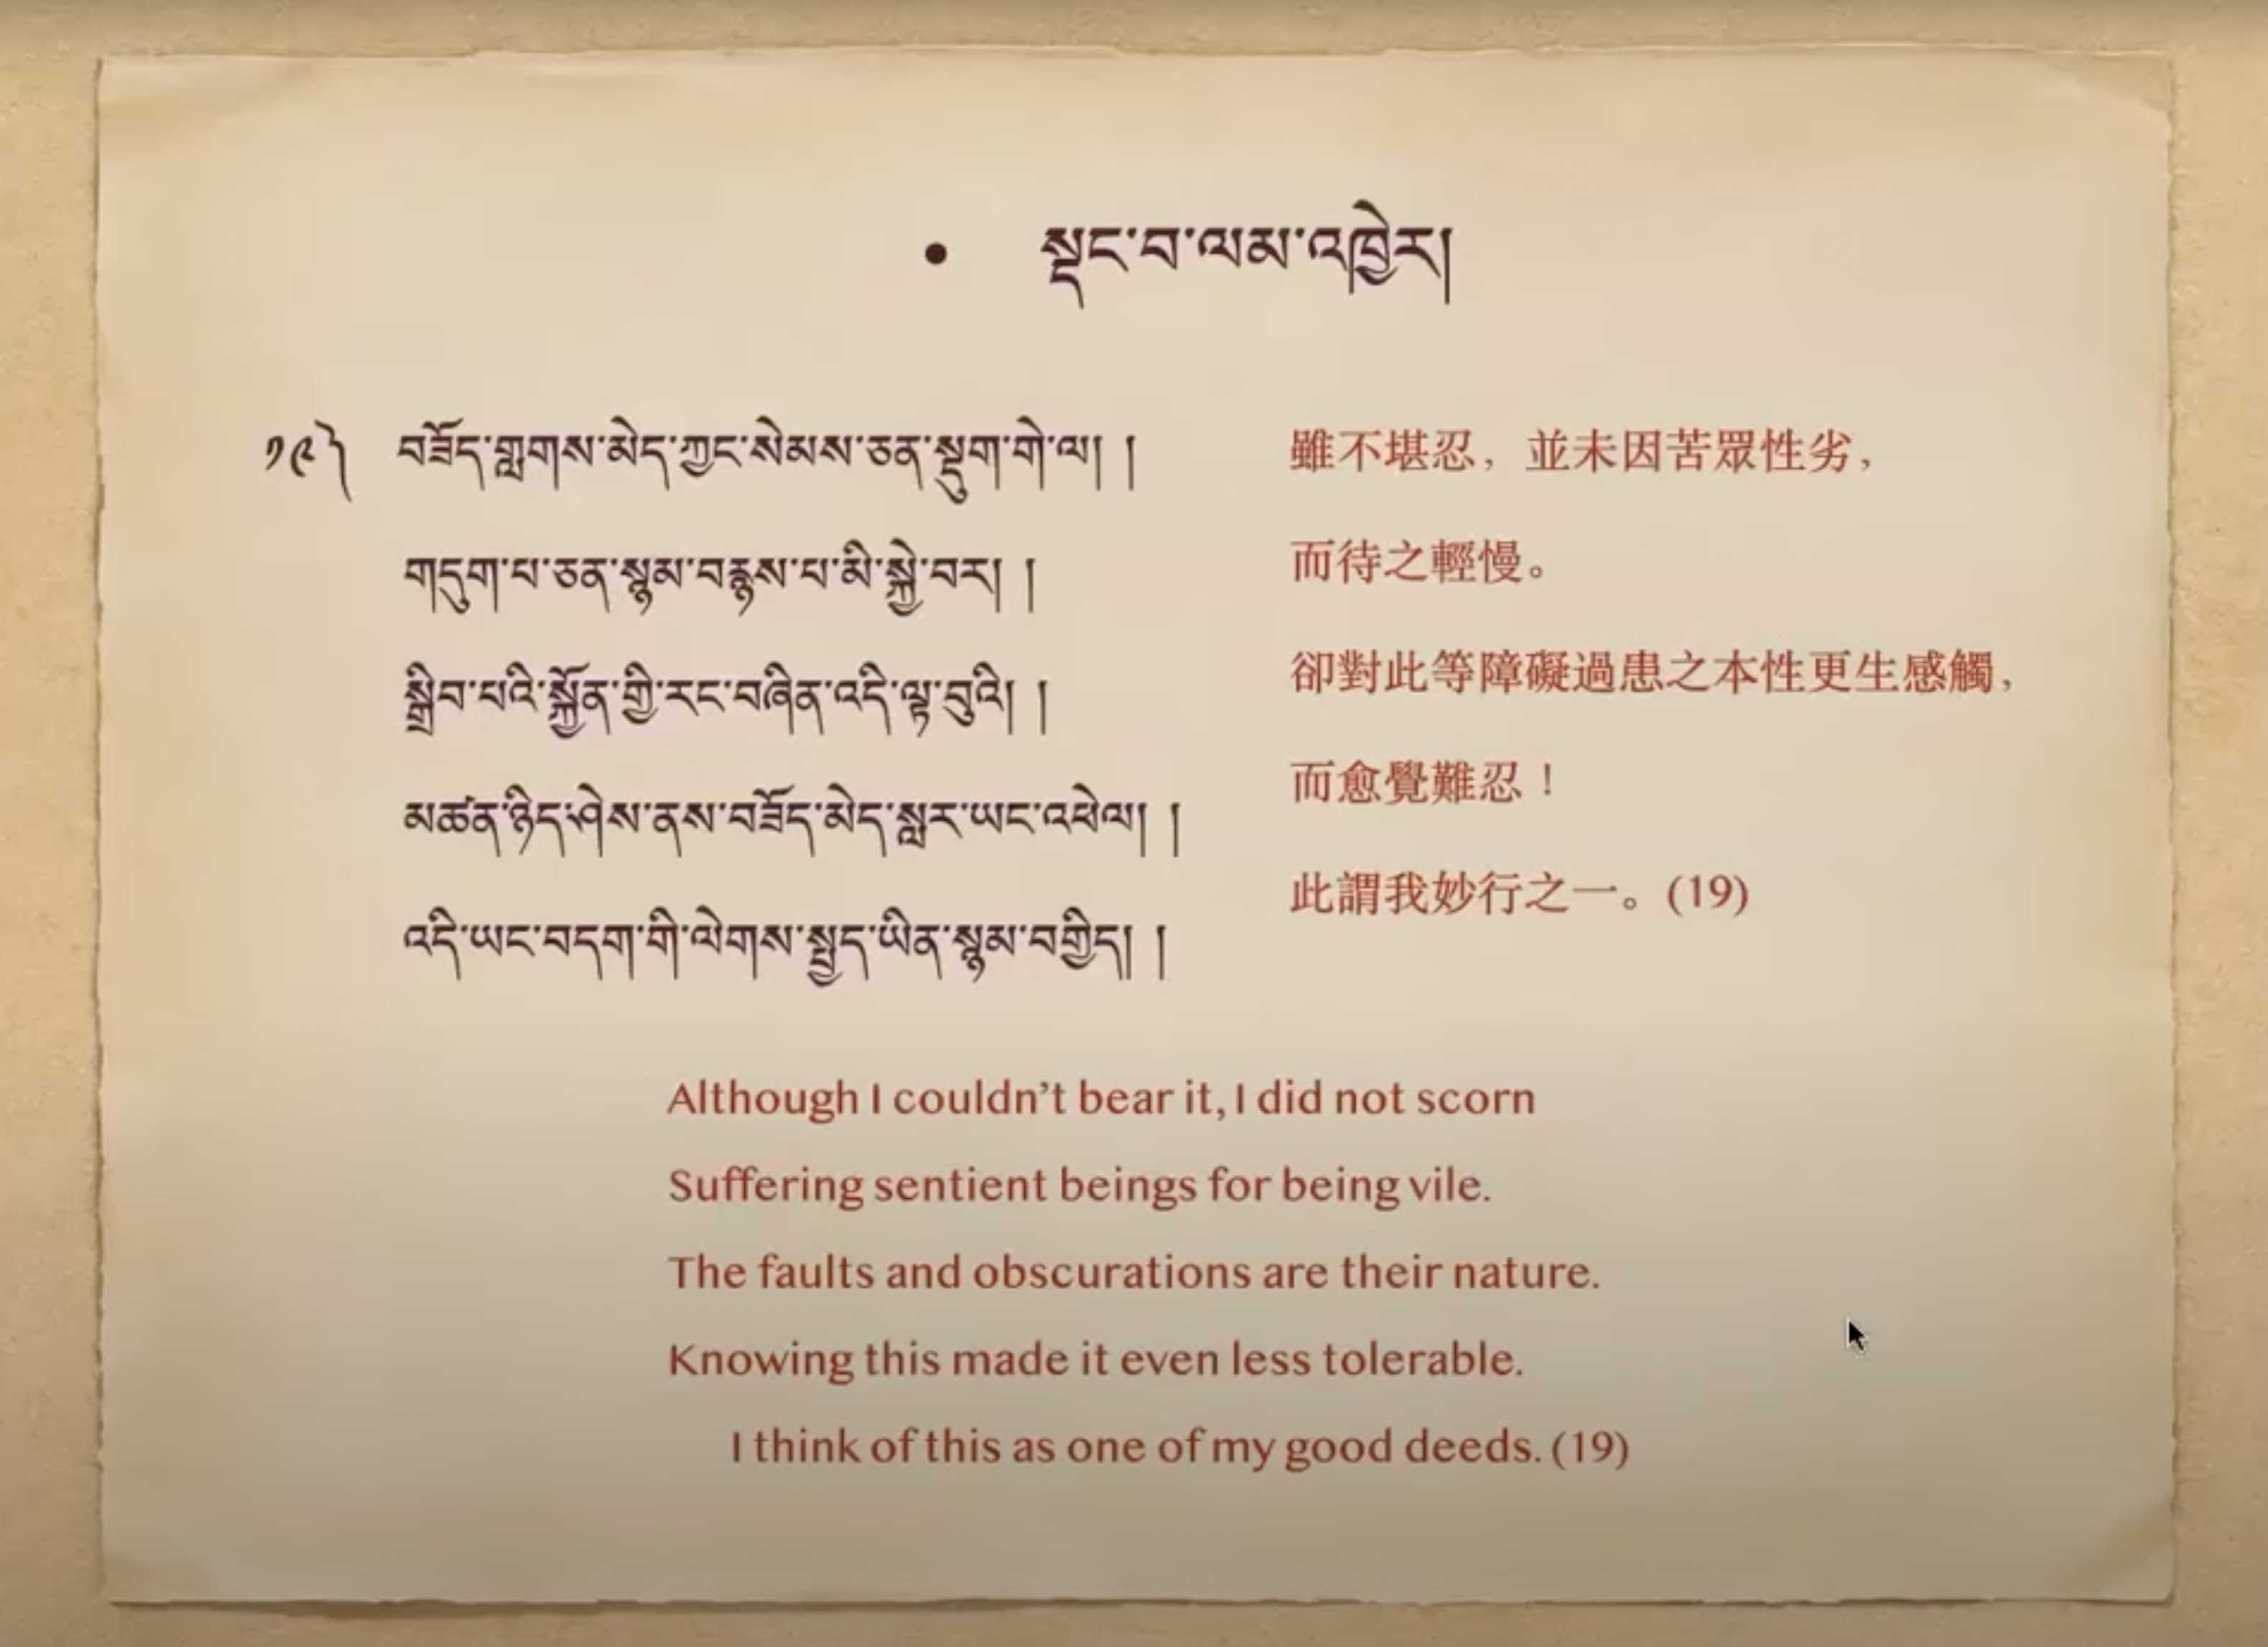 • སྡང་བ་ལམ་འཁྱེར།
༡༩༽ བཟོད་གླགས་མེད་ཀྱང་སེམས་ཅན་སྡུག་གེ་ལ། །
གདུག་པ་ཅན་སྙམ་བརྙས་པ་མི་སྐྱེ་བར། །
སྒྲིབ་པའི་སྐྱོན་གྱི་རང་བཞིན་འདི་ལྟ་བུའི། །
མཚན་ཉིད་ཤེས་ནས་བཟོད་མེད་སླར་ཡང་འཕེལ། །
འདི་ཡང་བདག་གི་ལེགས་སྤྱད་ཡིན་སྙམ་བགྱིད། །
雖不堪忍，並未因苦眾性劣，
而待之輕慢。
卻對此等障礙過患之本性更生感觸，
而愈覺難忍！
此謂我妙行之一。(19)
Although I couldn’t bear it, I did not scorn
Suffering sentient beings for being vile.
The faults and obscurations are their nature.
Knowing this made it even less tolerable.
I think of this as one of my good deeds. (19)